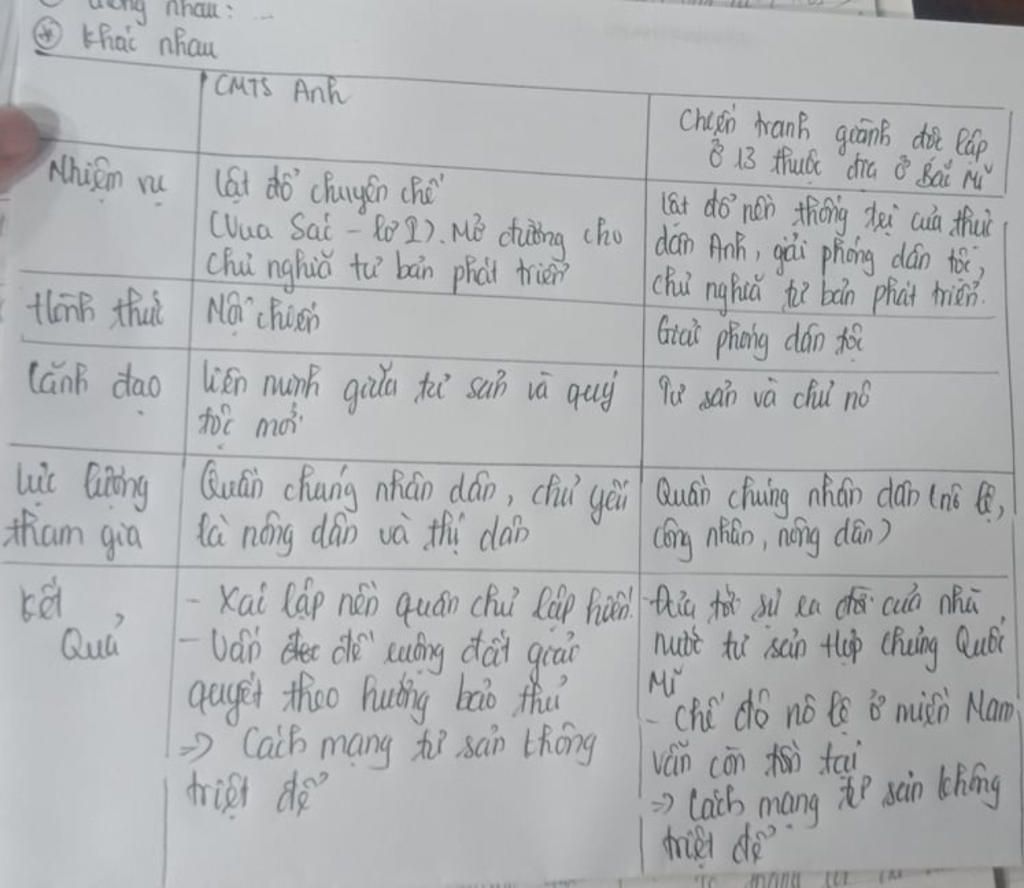 nhau: ...
* Khác nhau
CMTS Anh
Chiến tranh giành độc lập
ở 13 thuộc địa ở Bắc Mĩ
Nhiệm vụ
Lật đổ chuyên chế
(Vua Sác-lơ I). Mở đường cho
chủ nghĩa tư bản phát triển
Lật đổ nền thống trị của thực
dân Anh, giải phóng dân tộc,
chủ nghĩa tư bản phát triển.
Hình thức
Nội chiến
Giải phóng dân tộc
Lãnh đạo
Liên minh giữa tư sản và quý
tộc mới
Tư sản và chủ nô
Lực lượng
tham gia
Quần chúng nhân dân, chủ yếu
là nông dân và thị dân
Quần chúng nhân dân (nô lệ,
công nhân, nông dân)
Kết
Quả
- Xác lập nền quân chủ lập hiến.
- Vấn đề ruộng đất giải
quyết theo hướng bảo thủ
=> Cách mạng tư sản không
triệt để
- Đưa tới sự ra đời của nhà
nước tư sản Hợp chúng Quốc
Mĩ
- Chế độ nô lệ ở miền Nam
vẫn còn tồn tại
=> Cách mạng tư sản không
triệt để